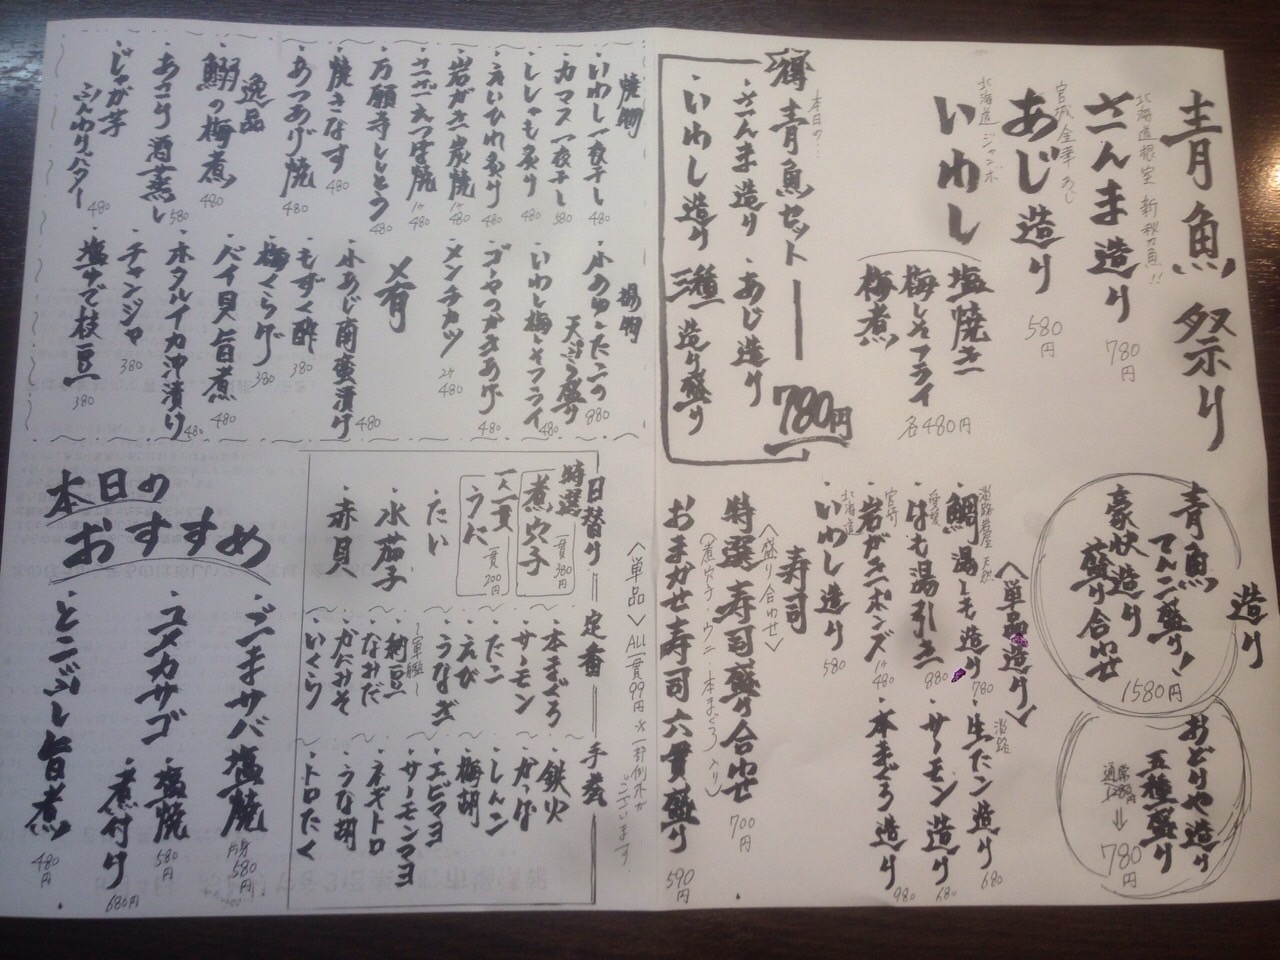 青魚祭り
北海道根室 新秋刀魚!!
さんま造り 780円
宮城金華あじ
あじ造り 580円
北海道ジャンボ
いわし
塩焼き
梅しそフライ
梅煮
各480円
本日の…
得 青魚セット 780円
・さんま造り ・あじ造り
・いわし造り 三種造り盛り
造り
青魚
てんこ盛り!
豪快造り
盛り合わせ
1580円
おどりや造り
五種盛り
通常1280円
⇓
780円
〈単品造り〉
淡路岩屋天然
・鯛湯しも造り 780
愛媛
・はも湯引き 880
宮崎
・岩がきポンズ 1ケ480
北海道
・いわし造り 580
淡路
・生たこ造り 680
・サーモン造り 680
・本まぐろ造り 980
寿司
〈盛り合わせ〉
特選寿司盛り合わせ 700円
(煮穴子・ウニ・本まぐろ入り)
おまかせ寿司六貫盛り 590円
焼物
・いわし一夜干し 480
・カマス一夜干し 580
・ししゃも炙り 480
・えいひれ炙り 480
・岩がき炭焼 1ケ480
・さざえつぼ焼 1ケ480
・万願寺しとう 480
・焼きなす 480
・あつあげ焼 480
逸品
・鰯の梅煮 480
・あさり酒蒸し 580
・じゃが芋
シンわりバター 480
揚物
・小あゆたこの
天ぷら盛り 880
・いわし梅しそフライ 480
・ゴーヤつかきあげ 480
・メンチカツ 2ケ480
〆肴
・小あじ南蛮漬け 480
・もずく酢 380
・梅くらげ 380
・バイ貝旨煮 480
・ホタルイカ沖漬け 480
・チャンジャ 380
・塩ゆで枝豆 380
〈単品〉 ALL一貫99円 ※一部例外がございます
日替り
特選
煮穴子 一貫380円
一人一貫
・うに 一貫200円
・たい
・水茄子
・赤貝
定番
・本まぐろ
・サーモン
・たこ
・えび
・うなぎ
〜軍艦〜
・納豆
・なみだ
・かにみそ
・いくら
手巻
・鉄火
・かっぱ
・しんこ
・梅胡
・エビマヨ
・サーモンマヨ
・ネギトロ
・うな胡
・トロたく
本日の
おすすめ
・ごまサバ塩焼 片身580円
・ユメカサゴ ・塩焼 580円
・煮付け 680円
・とこぶし旨煮 480円